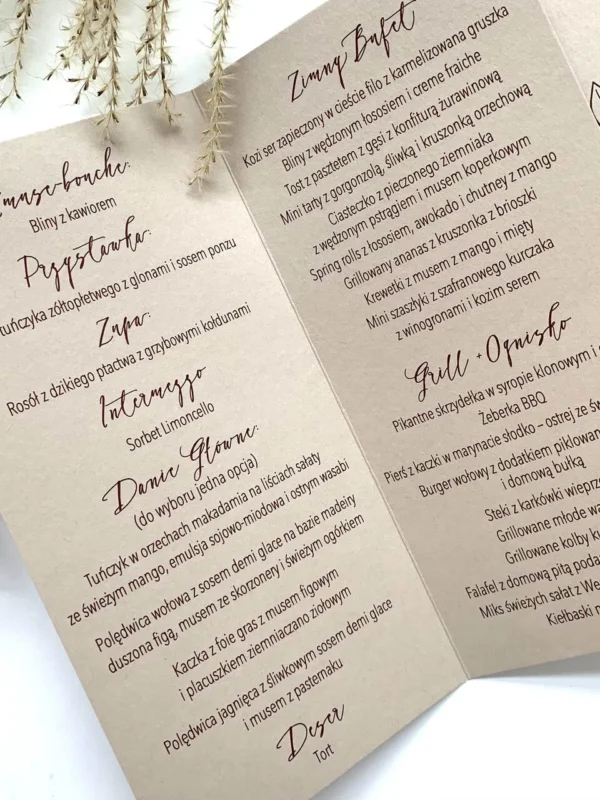 Amuse-bouche:
Bliny z kawiorem
Przystawka:
tuńczyka żółtopłetwego z glonami i sosem ponzu
Zupa:
Rosół z dzikiego ptactwa z grzybowymi kołdunami
Intermezzo
Sorbet Limoncello
Danie Główne:
(do wyboru jedna opcja)
Tuńczyk w orzechach makadamia na liściach sałaty
ze świeżym mango, emulsja sojowo-miodowa i ostrym wasabi
Polędwica wołowa z sosem demi glace na bazie madeiry
duszona figą, musem ze skorzonery i świeżym ogórkiem
Kaczka z foie gras z musem figowym
i placuszkiem ziemniaczano ziołowym
Polędwica jagnięca z śliwkowym sosem demi glace
i musem z pasternaku
Deser
Tort
Zimny Bufet
Kozi ser zapieczony w cieście filo z karmelizowana gruszka
Bliny z wędzonym łososiem i creme fraiche
Tost z pasztetem z gęsi z konfiturą żurawinową
Mini tarty z gorgonzolą, śliwką i kruszonką orzechową
Ciasteczko z pieczonego ziemniaka
z wędzonym pstrągiem i musem koperkowym
Spring rolls z łososiem, awokado i chutney z mango
Grillowany ananas z kruszonka z brioszki
Krewetki z musem z mango i mięty
Mini szaszłyki z szafranowego kurczaka
z winogronami i kozim serem
Grill + Ognisko
Pikantne skrzydełka w syropie klonowym i
Żeberka BBQ
Pierś z kaczki w marynacie słodko – ostrej ze
Burger wołowy z dodatkiem
i domową bułką
Steki z karkówki
Grillowane młode
Grillowane kolby
Falafel z domową pitą
Miks świeżych sałat z
Kiełbaski